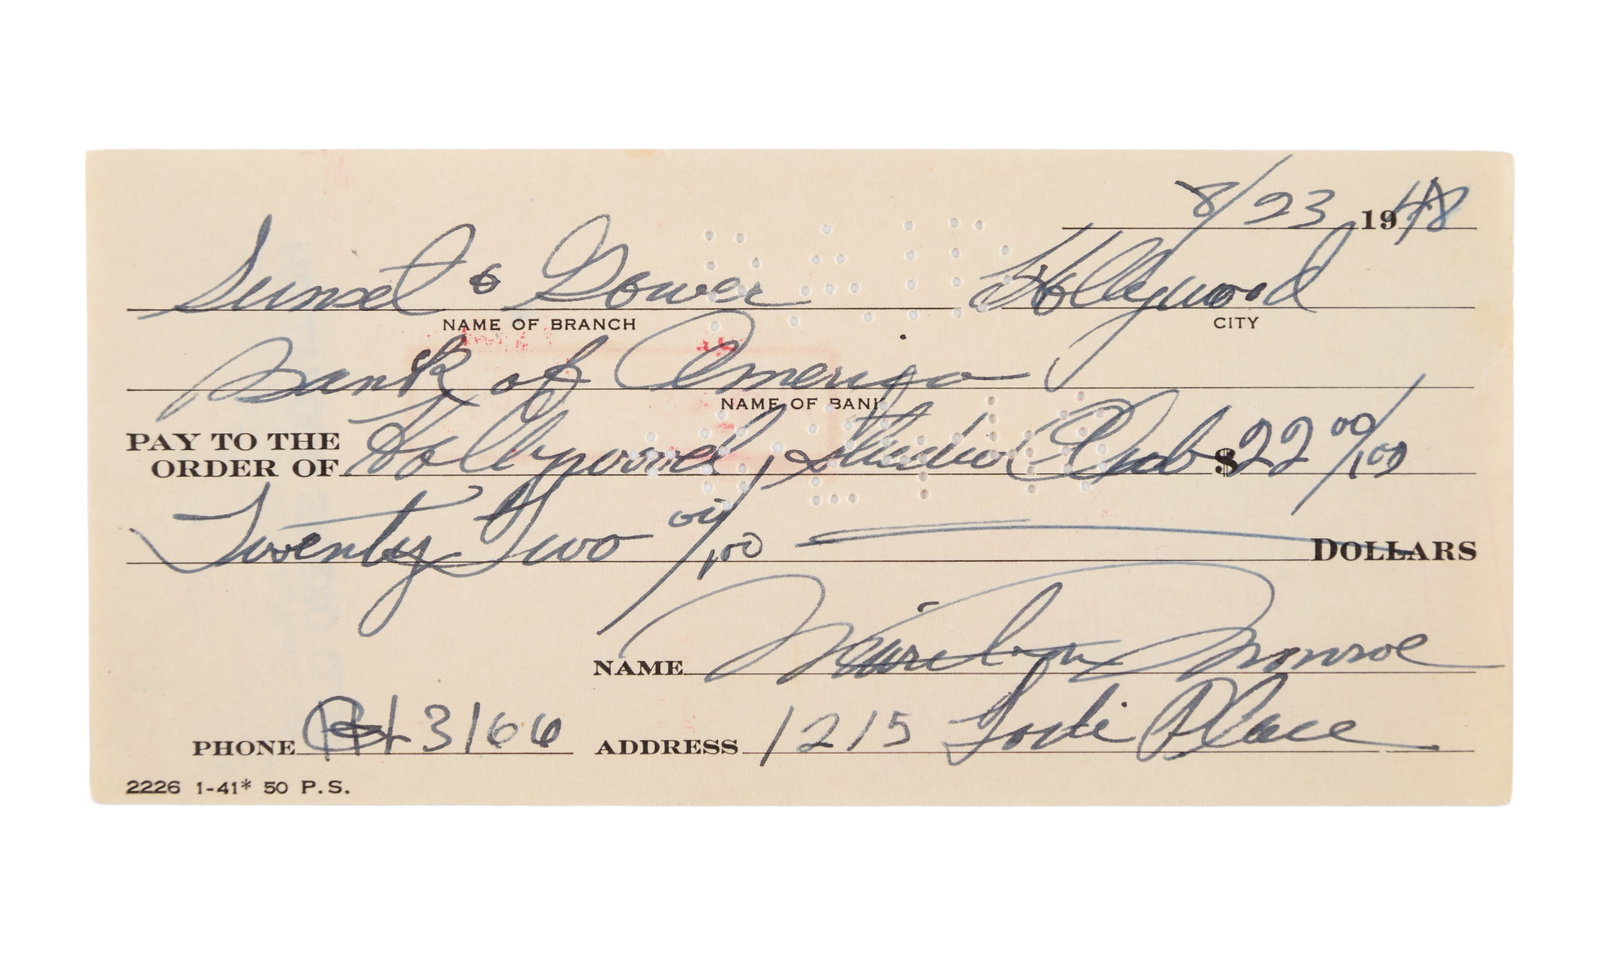 8/23 1948
Sunset & Gower Hollywood
NAME OF BRANCH CITY
Bank of America
NAME OF BANK
PAY TO THE
ORDER OF Hollywood, Studio Club $22 00/100
Twenty Two 00/100 DOLLARS
NAME Marilyn Monroe
PHONE 3166 ADDRESS 1215 Lodi Place
2226 1-41* 50 P.S.